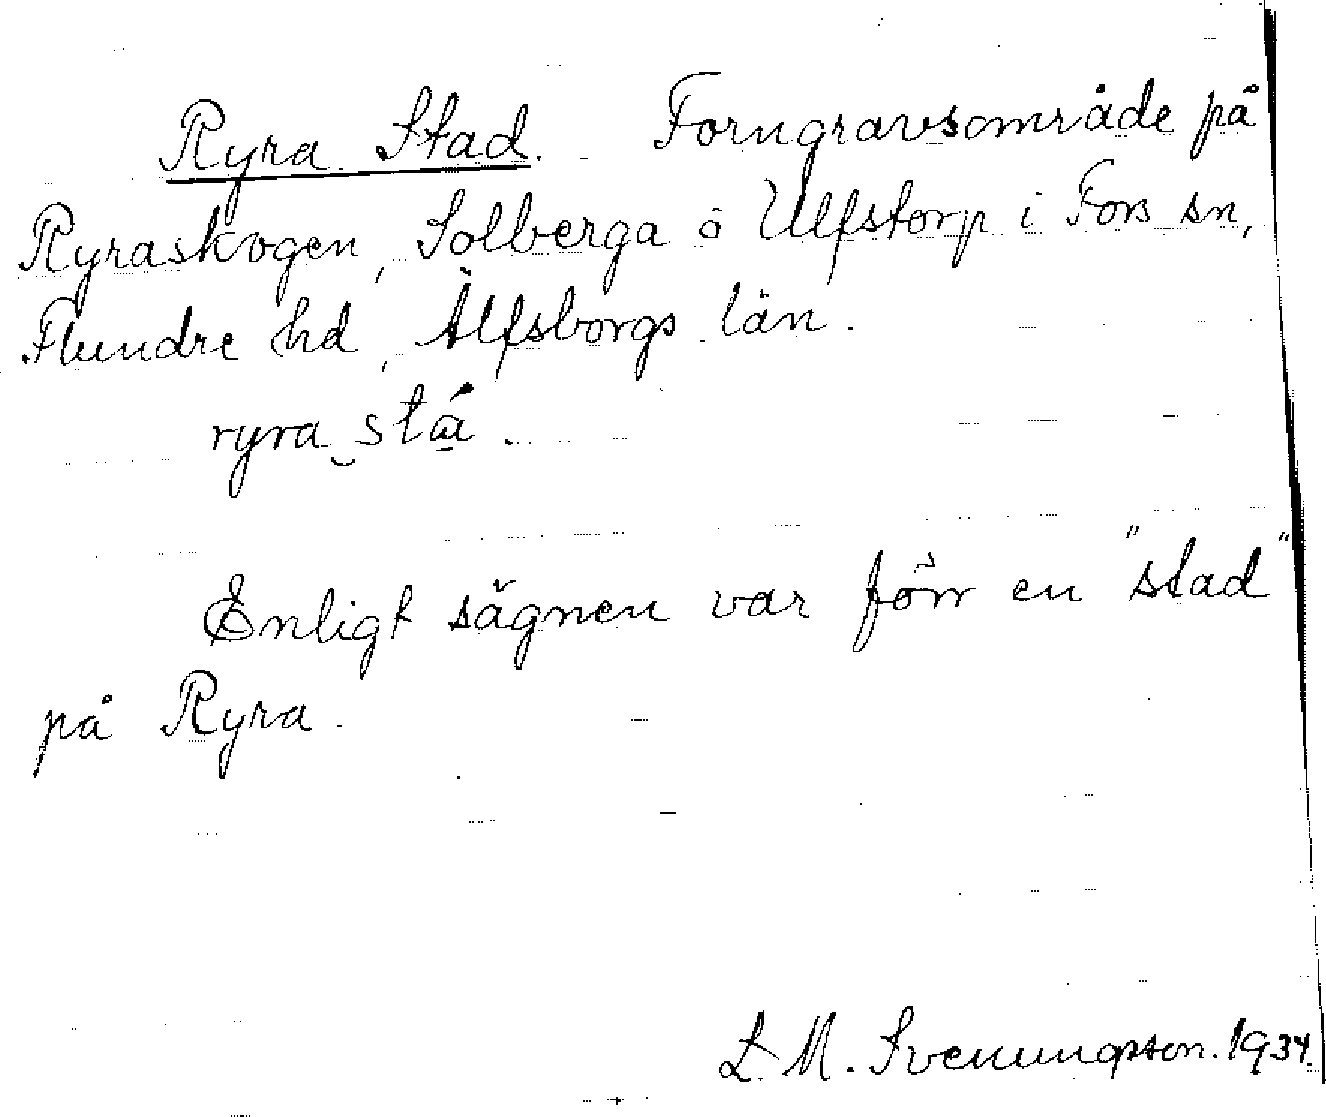 Ryra Stad. Forngravsområde på
Ryraskogen, Solberga o Ulfstorp i Fors sn,
Flundre hd, Älfsborgs län.
ryra stá.
Enligt sägnen var förr en "stad"
på Ryra.
L. M. Svenungsson. 1934.